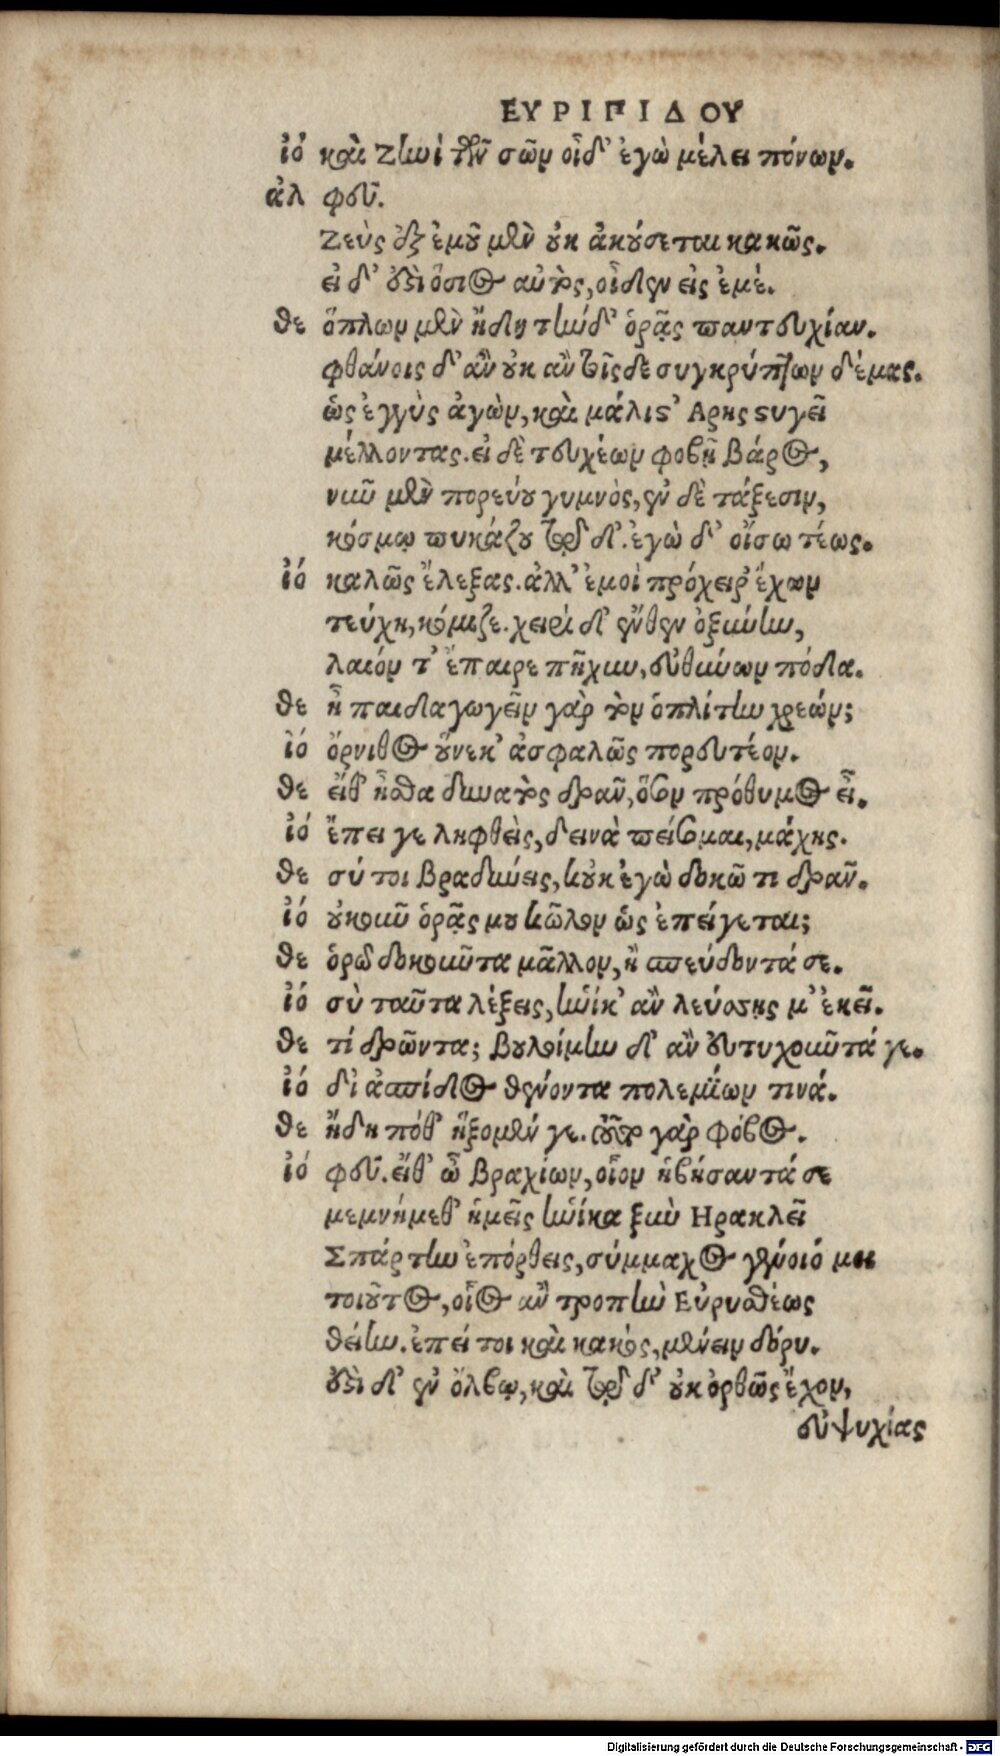 ΕΥΡΙΠΙΔΟΥ
ἰό καὶ Ζηνὶ τῶν σῶν οἶδ' ἐγὼ μέλει πόνων.
ἀλ φεῦ.
Ζεὺς ἐξ ἐμοῦ μὲν οὐκ ἀκούσεται κακῶς.
εἰ δ' ἐστὶ ὅσιος αὐτὸς, οἶδεν εἰς ἐμέ.
θε ὅπλων μὲν ἤδη τήνδ' ὁρᾷς παντευχίαν.
φθάνοις δ' ἂν οὐκ ἂν τοῖςδε συγκρύπτων δέμας.
ὡς ἐγγὺς ἀγὼν, καὶ μάλιστ' Αρης στυγεῖ
μέλλοντας. εἰ δὲ τευχέων φοβῇ βάρος,
νῦν μὲν πορεύου γυμνὸς, ἐν δὲ τάξεσιν,
κόσμῳ πυκάζου τῷδ'. ἐγὼ δ' οἴσω τέως.
ἰό καλῶς ἔλεξας. ἀλλ' ἐμοὶ πρόχειρ' ἔχων
τεύχη, κόμιζε. χειρὶ δ' ἔνθεν ὀξύην,
λαιόν τ' ἔπαιρε πῆχυν, εὐθύνων πόδα.
θε ἦ παιδαγωγεῖν γὰρ τὸν ὁπλίτην χρεών;
ἰό ὄρνιθος οὕνεκ' ἀσφαλῶς πορευτέον.
θε εἴθ' ἦσθα δυνατὸς δρᾶν, ὅσον πρόθυμος εἶ.
ἰό ἔπειγε ληφθεὶς, δεινὰ πείσομαι, μάχης.
θε σύ τοι βραδύνεις, κοὐκ ἐγὼ δοκῶ τι δρᾶν.
ἰό οὐκοῦν ὁρᾷς μου κῶλον ὡς ἐπείγεται;
θε ὁρῶ δοκοῦντα μᾶλλον, ἢ σπεύδοντά σε.
ἰό σὺ ταῦτα λέξεις, ἡνίκ' ἂν λεύσσῃς μ' ἐκεῖ.
θε τί δρῶντα; βουλοίμην δ' ἂν εὐτυχοῦντά γε.
ἰό δι' ἀσπίδος θένοντα πολεμίων τινά.
θε ἤδη πόθ' ἥξομέν γε. τοῦτο γὰρ φόβος.
ἰό φεῦ. εἴθ' ὦ βραχίων, οἷον ἡβήσαντά σε
μεμνήμεθ' ἡμεῖς ἡνίκα ξὺν Ηρακλεῖ
Σπάρτην ἐπόρθεις, σύμμαχος γένοιό μοι
τοιοῦτος, οἷος ἂν τροπὴν Εὐρυσθέως
θείην. ἐπεί τοι καὶ κακὸς, μένειν δόρυ.
ἐστὶ δ' ἐν ὄλβῳ, καὶ τόδ' οὐκ ὀρθῶς ἔχον,
εὐψυχίας
Digitalisierung gefördert durch die Deutsche Forschungsgemeinschaft - DFG